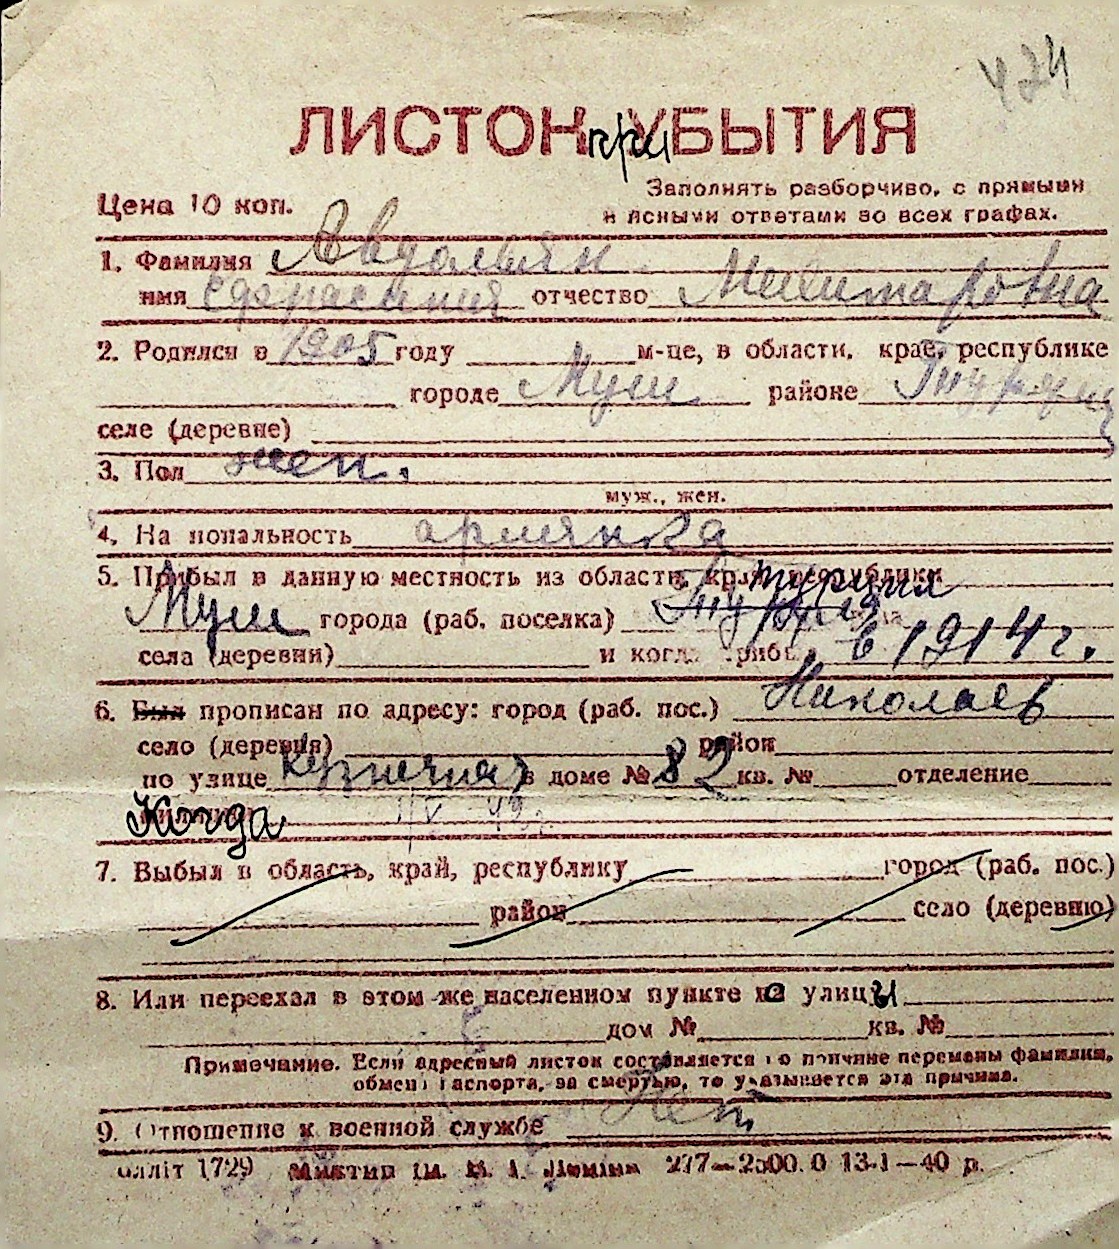 424
ЛИСТОК при УБЫТИЯ
Цена 10 коп.
Заполнять разборчиво, с прямыми
и ясными ответами во всех графах.
1. Фамилия Авдалян
имя отчество Мхитаровна
2. Родился в 1905 году м-це, в области, крае, республике
городе Муш районе Турция
селе (деревне)
3. Пол жен.
муж., жен.
4. Национальность армянка
5. Прибыл в данную местность из области, края, республики Турция
Муш города (раб. поселка) Турция
села (деревни) и когда прибыл в 1914 г.
6. Был прописан по адресу: город (раб. пос.) Николаев
село (деревня) район
по улице Кузнечная в доме № 82 кв. № отделение
Когда
7. Выбыл в область, край, республику город (раб. пос.)
район село (деревню)
8. Или переехал в этом же населенном пункте на улицы
дом № кв. №
Примечание. Если адресный листок составляется по причине перемены фамилии,
обмена паспорта, за смертью, то указывается эта причина.
9. Отношение к военной службе Нет
олліт 1729 277—2500.0 13-1—40 р.